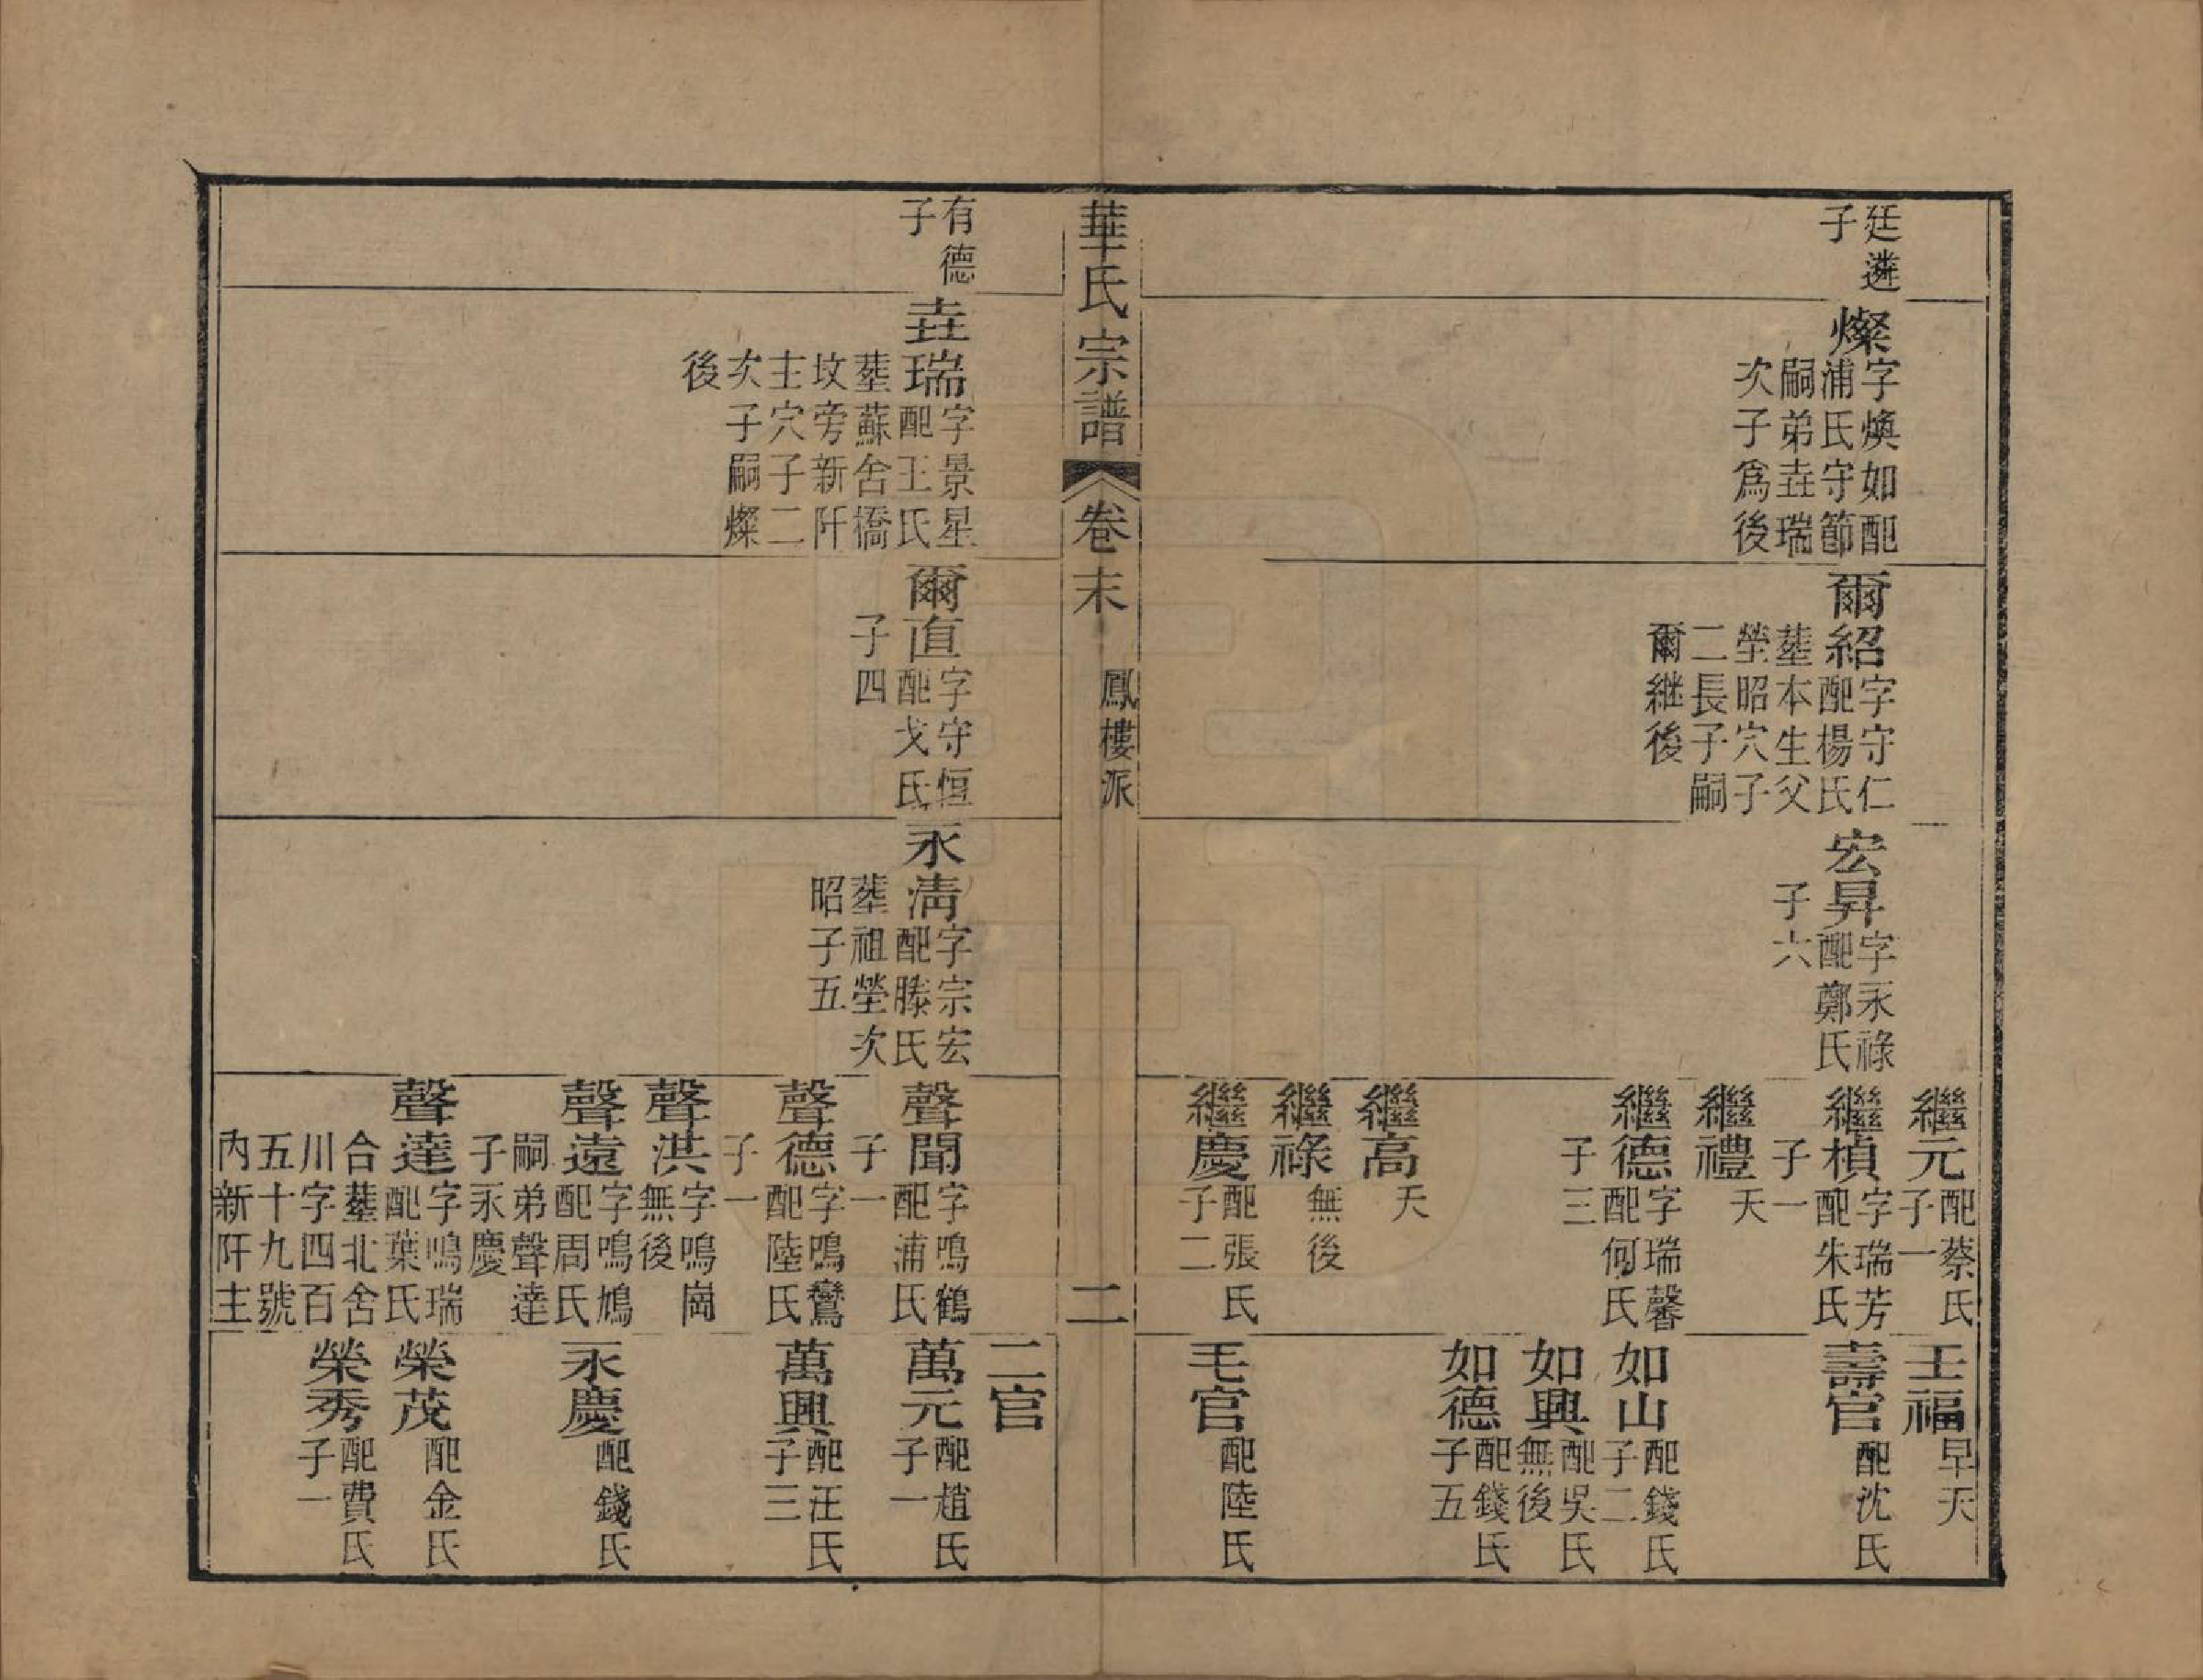 廷遴
子
燦
字煥如配
浦氏守節
嗣弟垚瑞
次子爲後
爾紹
字守仁
配楊氏
塟本生父
塋昭穴子
二長子嗣
爾継後
宏昇
字永祿
配鄭氏
子六
繼元
配蔡氏
子一
繼楨
字瑞芳
配朱氏
子一
繼禮
夭
繼德
字瑞馨
配何氏
子三
繼高
夭
繼祿
無後
繼慶
配張氏
子二
壬福
早夭
壽官
配沈氏
如山
配錢氏
子二
如興
配吳氏
無後
如德
配錢氏
子五
毛官
配陸氏
華氏宗譜
卷末
鳳樓派
二
有德
子
垚瑞
字景星
配王氏
塟蘇舍橋
坟旁新阡
主穴子二
次子嗣燦
後
爾直
字守恒
配戈氏
子四
永淸
字宗宏
配滕氏
塟祖塋次
昭子五
聲聞
字鳴鶴
配浦氏
子一
聲德
字鳴鸞
配陸氏
子一
聲洪
字鳴崗
無後
聲遠
字鳴鳩
配周氏
嗣弟聲達
子永慶
聲達
字鳴瑞
配葉氏
合塟北舍
川字四百
五十九號
內新阡主
二官
萬元
配趙氏
子一
萬興
配汪氏
子三
永慶
配錢氏
榮茂
配金氏
榮秀
配費氏
子一